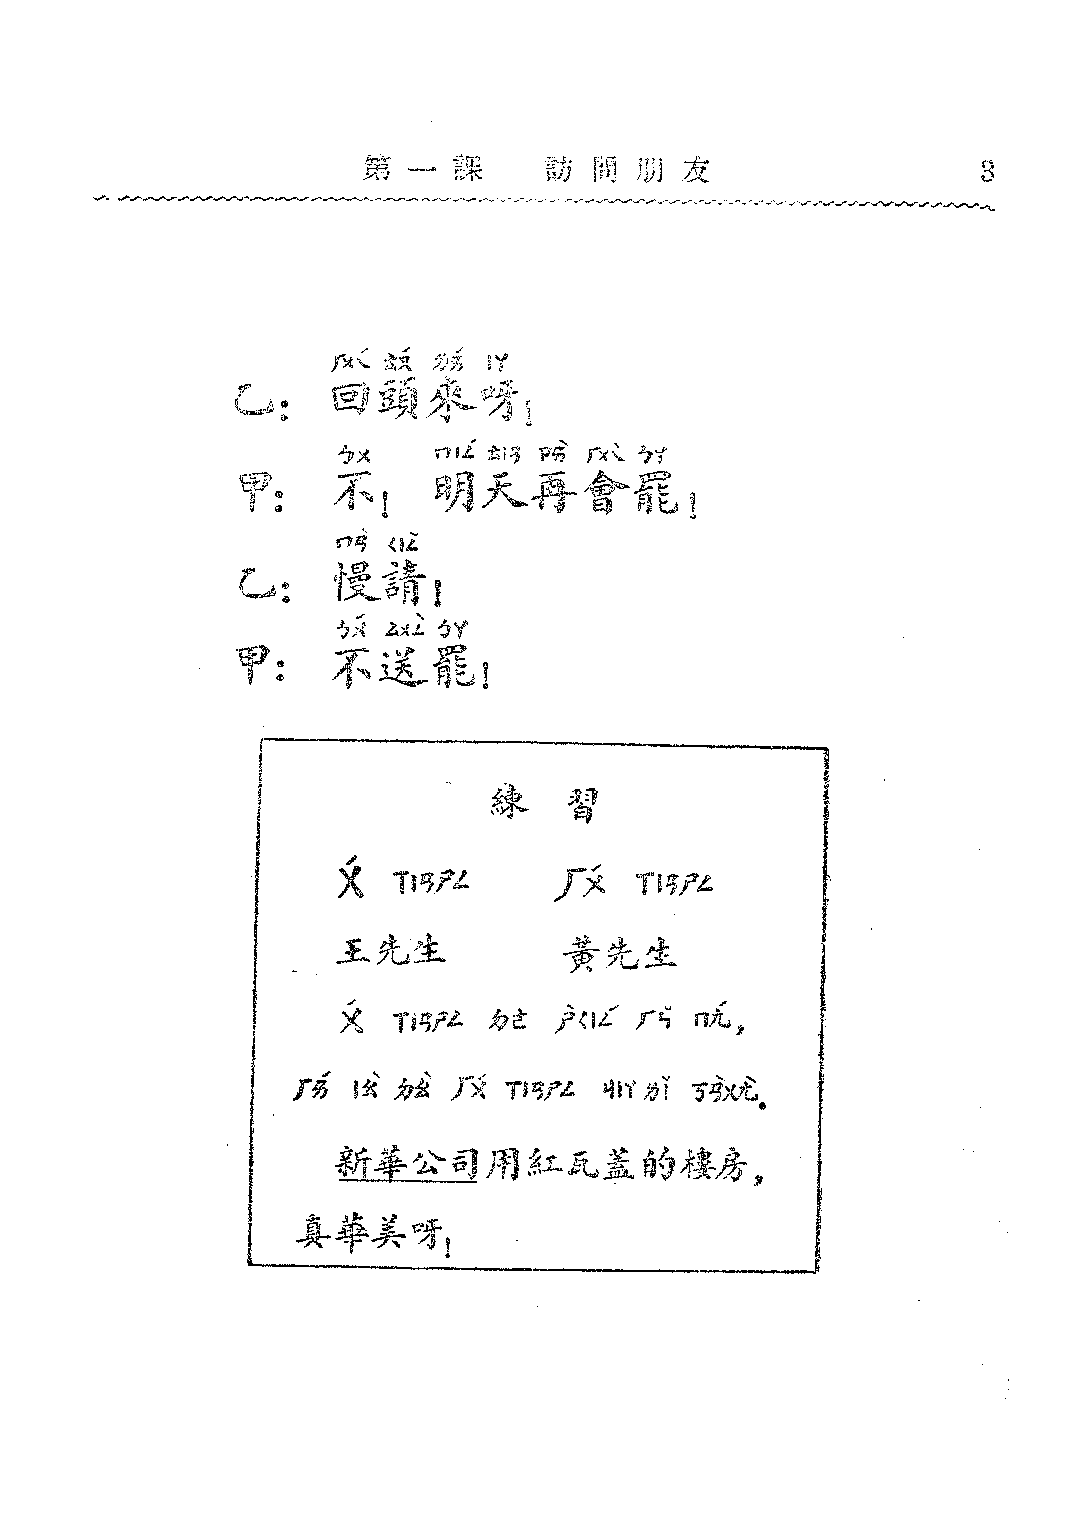 第一課 訪問朋友 3
ㄏㄨㄟˊ ㄊㄡˊ ㄌㄞˊ ㄧㄚ
乙: 回頭來呀!
ㄅㄨ ㄇㄧㄥˊ ㄊㄧㄢ ㄗㄞˋ ㄏㄨㄟˋ ㄅㄚ
甲: 不! 明天再會罷!
ㄇㄢˋ ㄑㄧㄥˇ
乙: 慢請!
ㄅㄨˊ ㄙㄨㄥˋ ㄅㄚ
甲: 不送罷!
練習
ㄨˊ ㄒㄧㄢㄕㄥ ㄏㄨˊ ㄒㄧㄢㄕㄥ
王先生 黃先生
ㄨˊ ㄒㄧㄢㄕㄥ ㄉㄜ ㄕˋㄑㄧㄥˊ ㄏㄣˇ ㄇㄤˊ,
ㄏㄞˊ ㄧㄠˋ ㄉㄠˋ ㄏㄨˊ ㄒㄧㄢㄕㄥ ㄐㄧㄚ ㄌㄧˇ
新華公司用紅瓦蓋的樓房,
真華美呀!